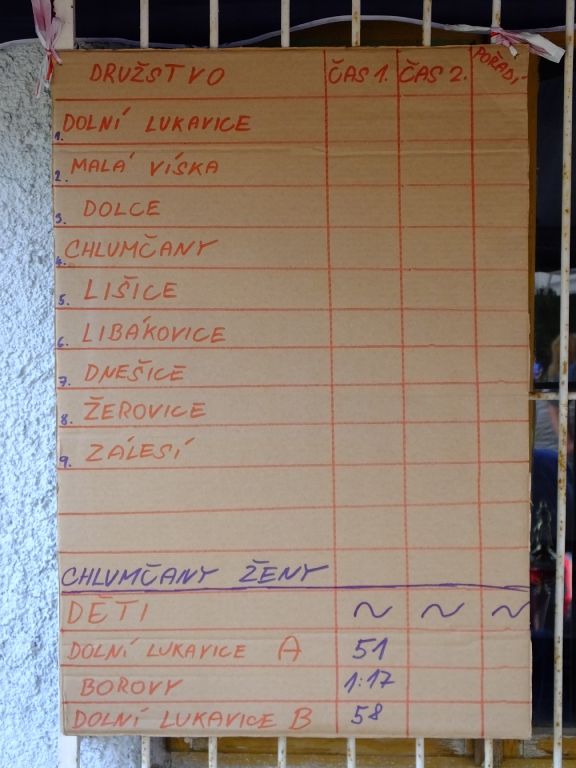 DRUŽSTVO ČAS 1. ČAS 2. POŘADÍ
1. DOLNÍ LUKAVICE
2. MALÁ VÍSKA
3. DOLCE
4. CHLUMČANY
5. LIŠICE
6. LIBÁKOVICE
7. DNEŠICE
8. ŽEROVICE
9. ZÁLESÍ
CHLUMČANY ŽENY
DĚTI ~ ~ ~
DOLNÍ LUKAVICE A 51
BOROVY 1:17
DOLNÍ LUKAVICE B 58